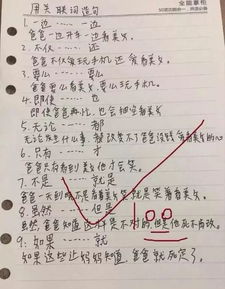 全能掌柜
用关联词造句
1. 一边……一边
爸爸一边开车一边看美女。
2. 不仅……还
爸爸不仅爱玩手机还爱看美女。
3. 要么……要么
爸爸要么看美女,要么玩手机。
4. 即使……也
即使爸爸
也会
看美女
5. 无论……都
无论发生什么事,都改变不了爸爸
看美女的心
6. 只有……才
爸爸只有看到美女他才会笑。
7. 不是……就是
爸爸一天到晚不是看着美女笑就是笑着看美女。
8. 虽然……但是
虽然,爸爸知道这样是不对的,但是他死不悔改。
9. 如果……就
如果这些让妈妈知道,爸爸就死定了。
100